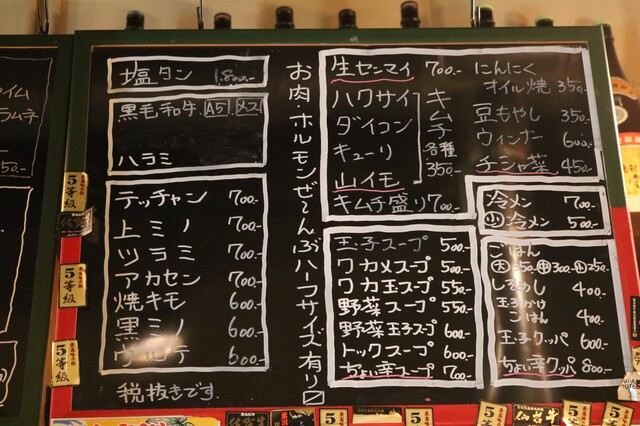 塩タン 1,800.-
黒毛和牛 A5 メス
ハラミ
テッチャン 700.-
上ミノ 700.-
ツラミ 700.-
アカセン 700.-
焼キモ 600.-
黒ミノ 600.-
ウルテ 600.-
税抜きです。
お肉・ホルモンぜ〜んぶハーフサイズ有り
生センマイ 700.-
ハクサイ
ダイコン
キューリ
山イモ
キムチ各種 350.-
キムチ盛り 700.-
にんにくオイル焼 350.-
豆もやし 350.-
ウィンナー 600.-
チシャ菜 450.-
冷メン 700.-
小冷メン 500.-
玉子スープ 500.-
ワカメスープ 550.-
ワカ玉スープ 550.-
野菜スープ 550.-
野菜玉子スープ 600.-
トックスープ 600.-
ちょい辛スープ 700.-
ごはん
大350.- 中300.- 小250.-
しそめし 400.-
玉子かけごはん 400.-
玉子クッパ 600.-
ちょい辛クッパ 800.-
5等級
5等級
5等級
仙台牛